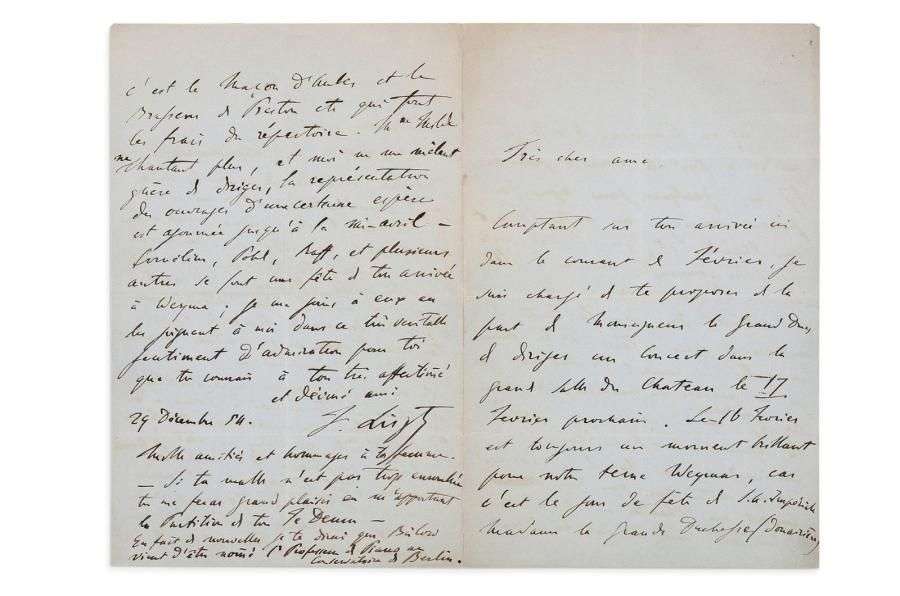 c'est le Maçon d'Auber et le
Brasseur de Preston etc qui font
les frais du répertoire. Mme Milde
ne chantant plus, et moi ne me mêlant
guère de diriger, la représentation
des ouvrages d'une certaine espèce
est ajournée jusqu'à la mi-avril –
Cornelius, Pohl, Raff, et plusieurs
autres se font une fête de ton arrivée
à Weymar; je me joins à eux en
les joignant à moi dans ce très véritable
sentiment d'admiration pour toi
que tu connais à ton très affectionné
et dévoué ami
29 Décembre 54. F. Liszt
Mille amitiés et hommages à ta femme.
– Si ta malle n'est pas trop encombrée
tu me feras grand plaisir en m'apportant
la Partition de ton Te Deum –
En fait de nouvelles je te dirai que Bülow
vient d'être nommé 1r Professeur de Piano au
Conservatoire de Berlin.
Très cher ami
Comptant sur ton arrivée ici
dans le courant de Février, je
suis chargé de te proposer de la
part de Monseigneur le Grand Duc
de diriger un Concert dans la
grande salle du Chateau le 17
Février prochain. Le 16 Février
est toujours un moment brillant
pour notre terne Weymar, car
c'est le jour de fête de S.A. Impériale
Madame la grande Duchesse (Douairière)